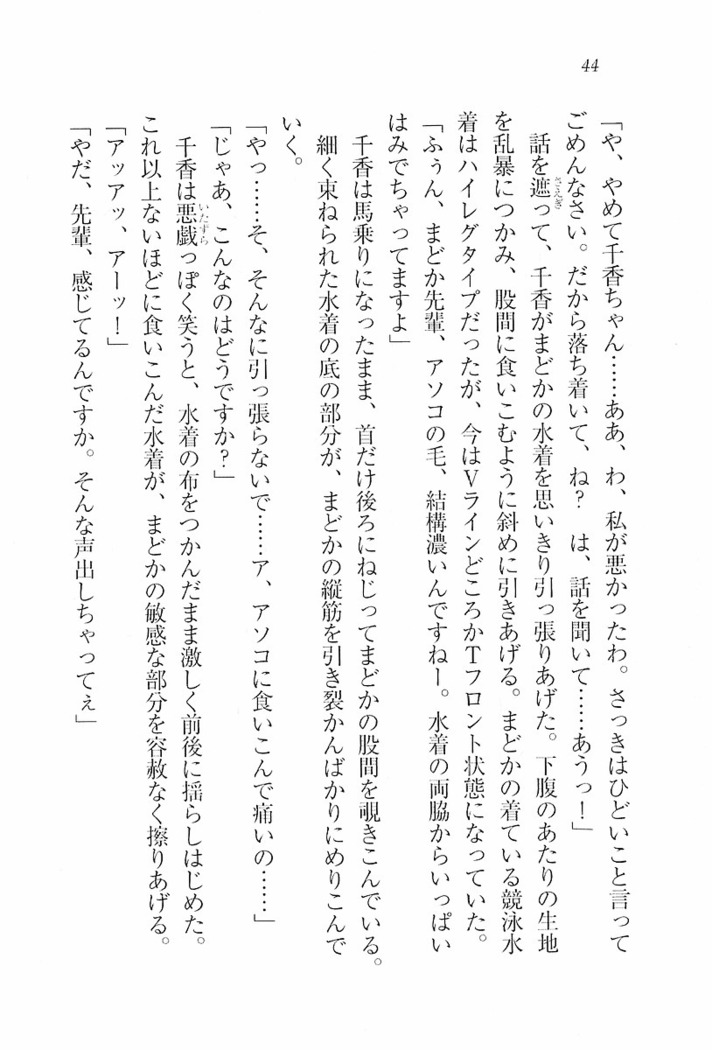 44
「や、やめて千香ちゃん……ああ、わ、私が悪かったわ。さっきはひどいこと言って
ごめんなさい。だから落ち着いて、ね?　は、話を聞いて……あうっ!」
話を遮って、千香がまどかの水着を思いきり引っ張りあげた。下腹のあたりの生地
を乱暴につかみ、股間に食いこむように斜めに引きあげる。まどかの着ている競泳水
着はハイレグタイプだったが、今はVラインどころかTフロント状態になっていた。
「ふぅん、まどか先輩、アソコの毛、結構濃いんですねー。水着の両脇からいっぱい
はみでちゃってますよ」
千香は馬乗りになったまま、首だけ後ろにねじってまどかの股間を覗きこんでいる。
細く束ねられた水着の底の部分が、まどかの縦筋を引き裂かんばかりにめりこんで
いく。
「やっ……そ、そんなに引っ張らないで……ア、アソコに食いこんで痛いの……」
「じゃあ、こんなのはどうですか?」
千香は悪戯っぽく笑うと、水着の布をつかんだまま激しく前後に揺らしはじめた。
これ以上ないほどに食いこんだ水着が、まどかの敏感な部分を容赦なく擦りあげる。
「アッアッ、アーッ!」
「やだ、先輩、感じてるんですか。そんな声出しちゃってぇ」